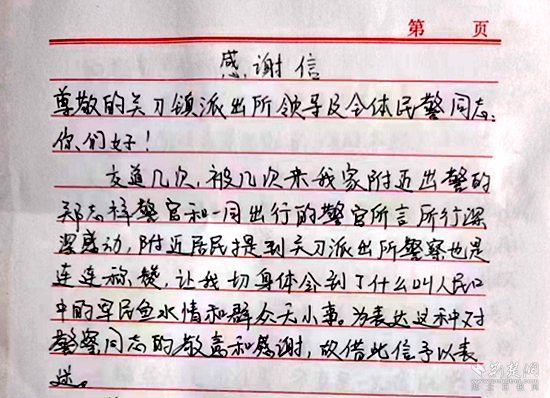 第 页
感谢信
尊敬的关刀镇派出所领导及全体民警同志:
你们好!
道几次,被几次来我家附近出警的
郑志祥警官和一同出行的警官所言所行深
深感动,附近居民提到关刀派出所警察也是
连连称赞,让我切身体会到了什么叫人民口
中的军民鱼水情和群众无小事。为表达这种对
警察同志的敬意和感谢,故借此信予以表
述。
荆楚网